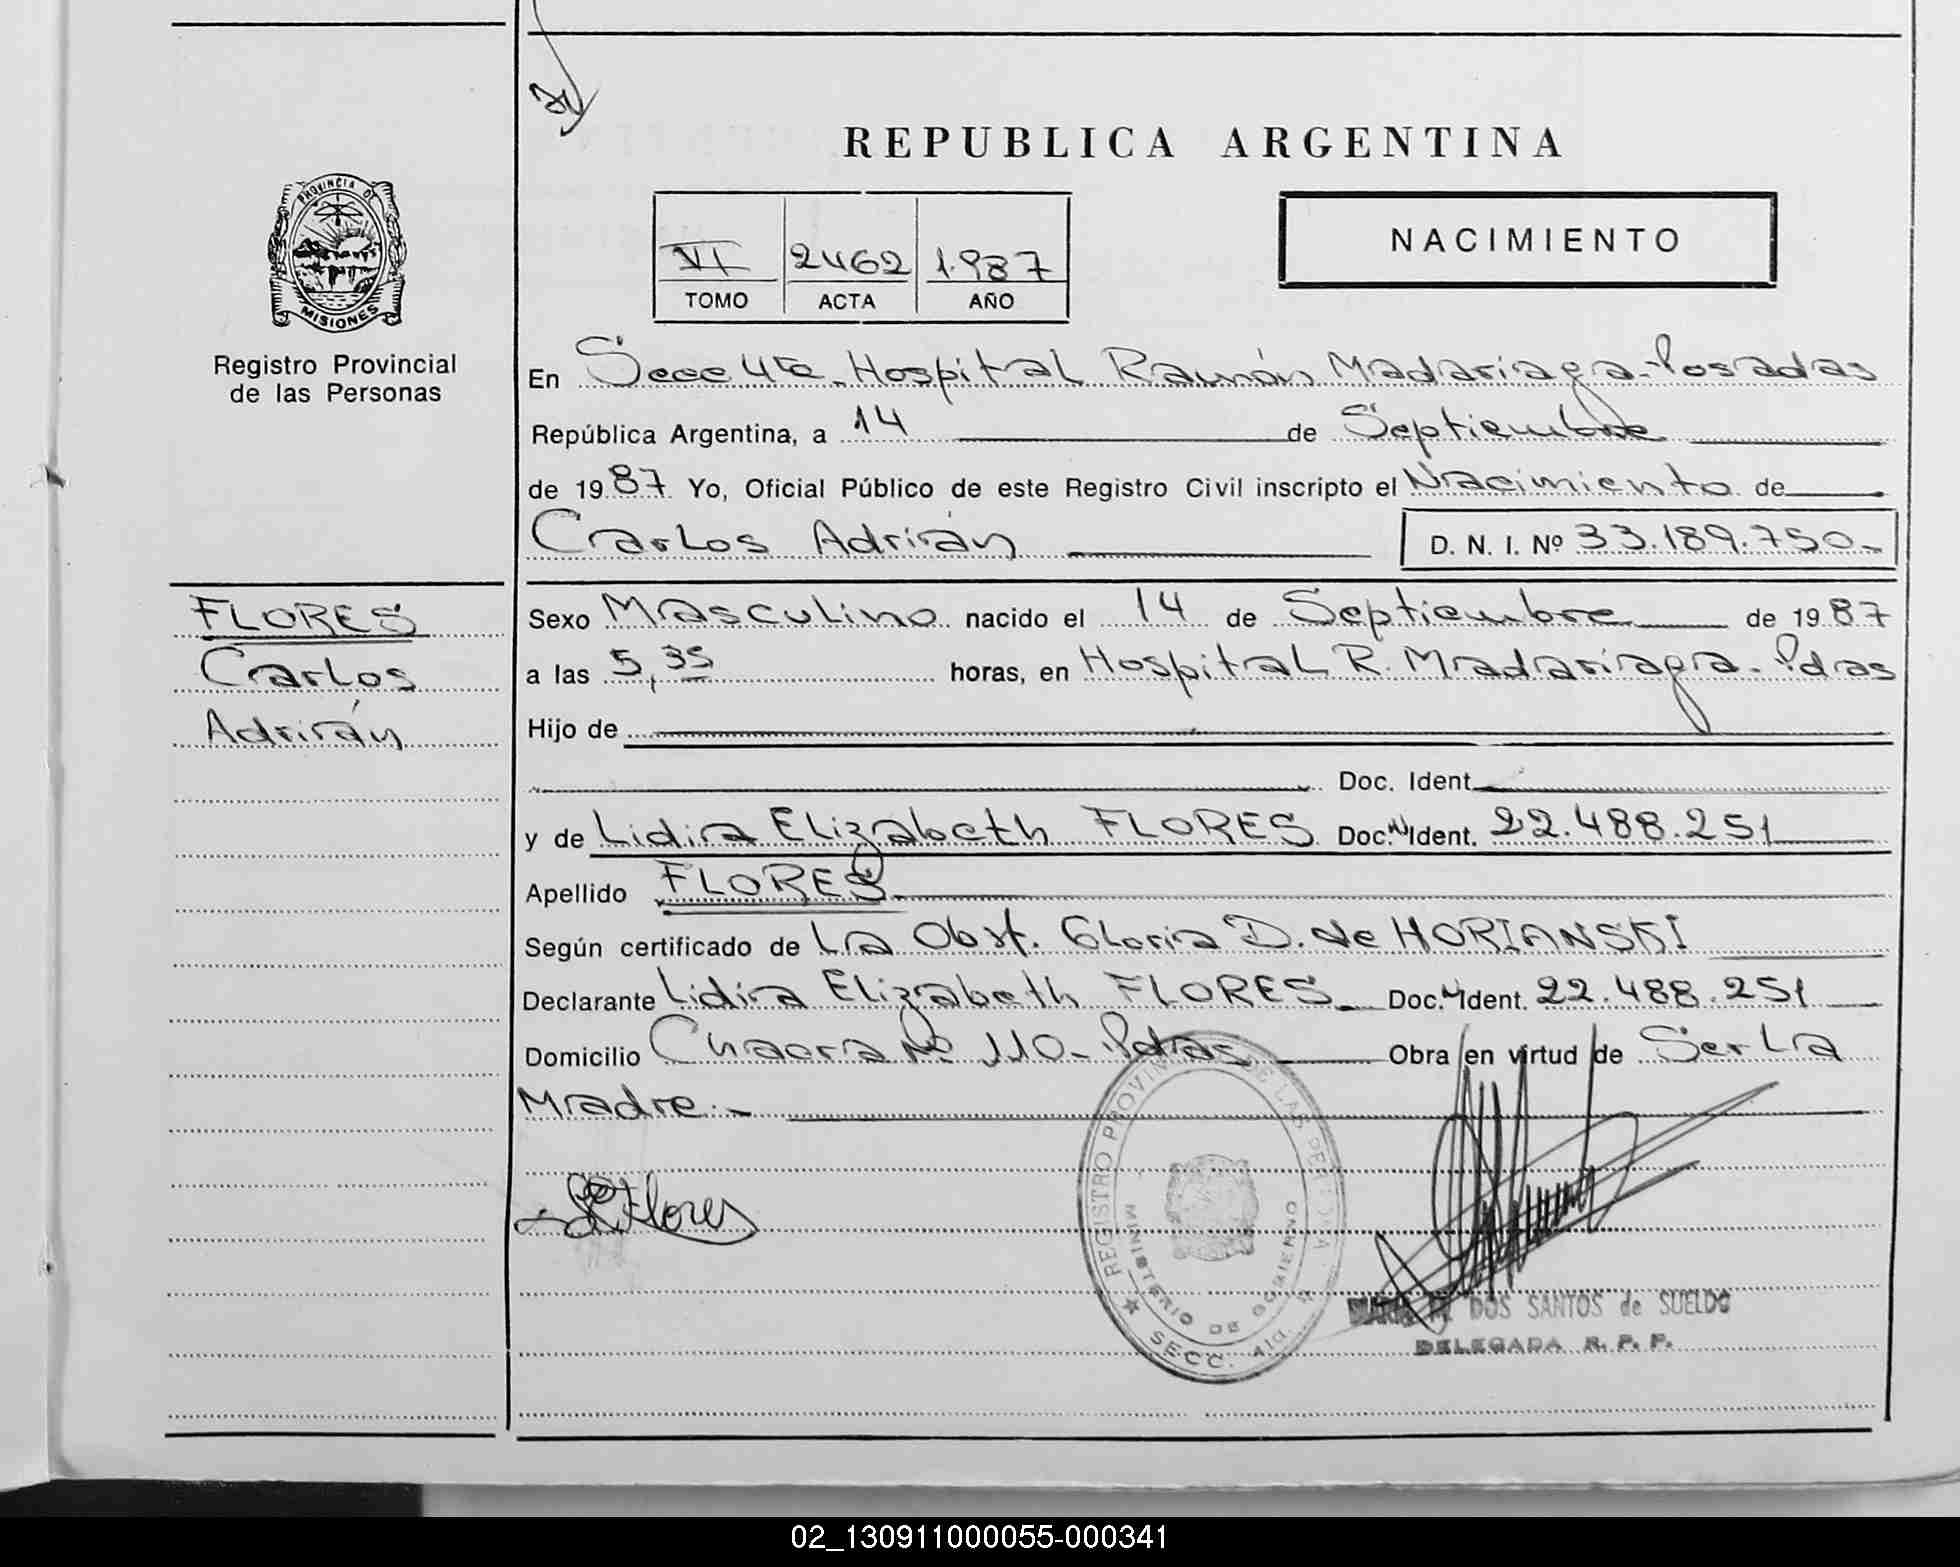 REPUBLICA ARGENTINA
PROVINCIA DE
MISIONES
Registro Provincial
de las Personas
VI 2462 1.987
TOMO ACTA AÑO
NACIMIENTO
En Secc 4ta. Hospital Ramón Madariaga-Posadas
República Argentina, a 14 de Septiembre
de 1987 Yo, Oficial Público de este Registro Civil inscripto el Nacimiento de
Carlos Adrián D. N. I. Nº 33.189.750-
FLORES
Carlos
Adrián
Sexo Masculino nacido el 14 de Septiembre de 1987
a las 5,35 horas, en Hospital R. Madariaga-Pdas
Hijo de
Doc. Ident.
y de Lidia Elizabeth FLORES Doc. Ident. 22.488.251
Apellido FLORES
Según certificado de La Obst. Gloria D. de HORIANSKI
Declarante Lidia Elizabeth FLORES Doc. Ident. 22.488.251
Domicilio Chacra Nº 110-Pdas Obra en virtud de Ser La
Madre.-
Flores
REGISTRO PROVINCIAL DE LAS PERSONAS
MINISTERIO DE GOBIERNO
SECC. 4ta.
DOS SANTOS de SUELDO
DELEGADA R. P. P.
02_130911000055-000341